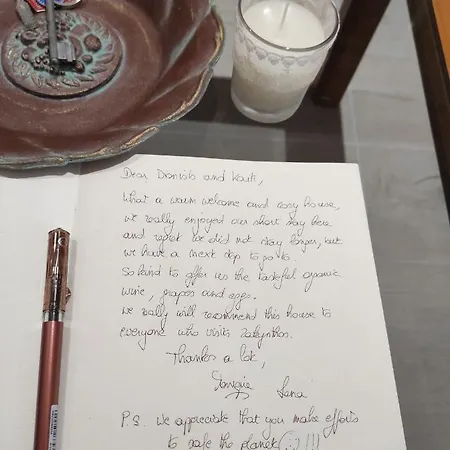 Dear Dionisis and
What a warm welcome and cosy house,
we really enjoyed our short stay here
and regret we did not stay longer, but
we have a next stop to go to.
So kind to offer us the tasteful organic
wine, grapes and eggs.
We really will recommend this house to
everyone who visits Zakynthos.
Thanks a lot,
P.S. We appreciate that you make efforts
to safe the planet :) !!!